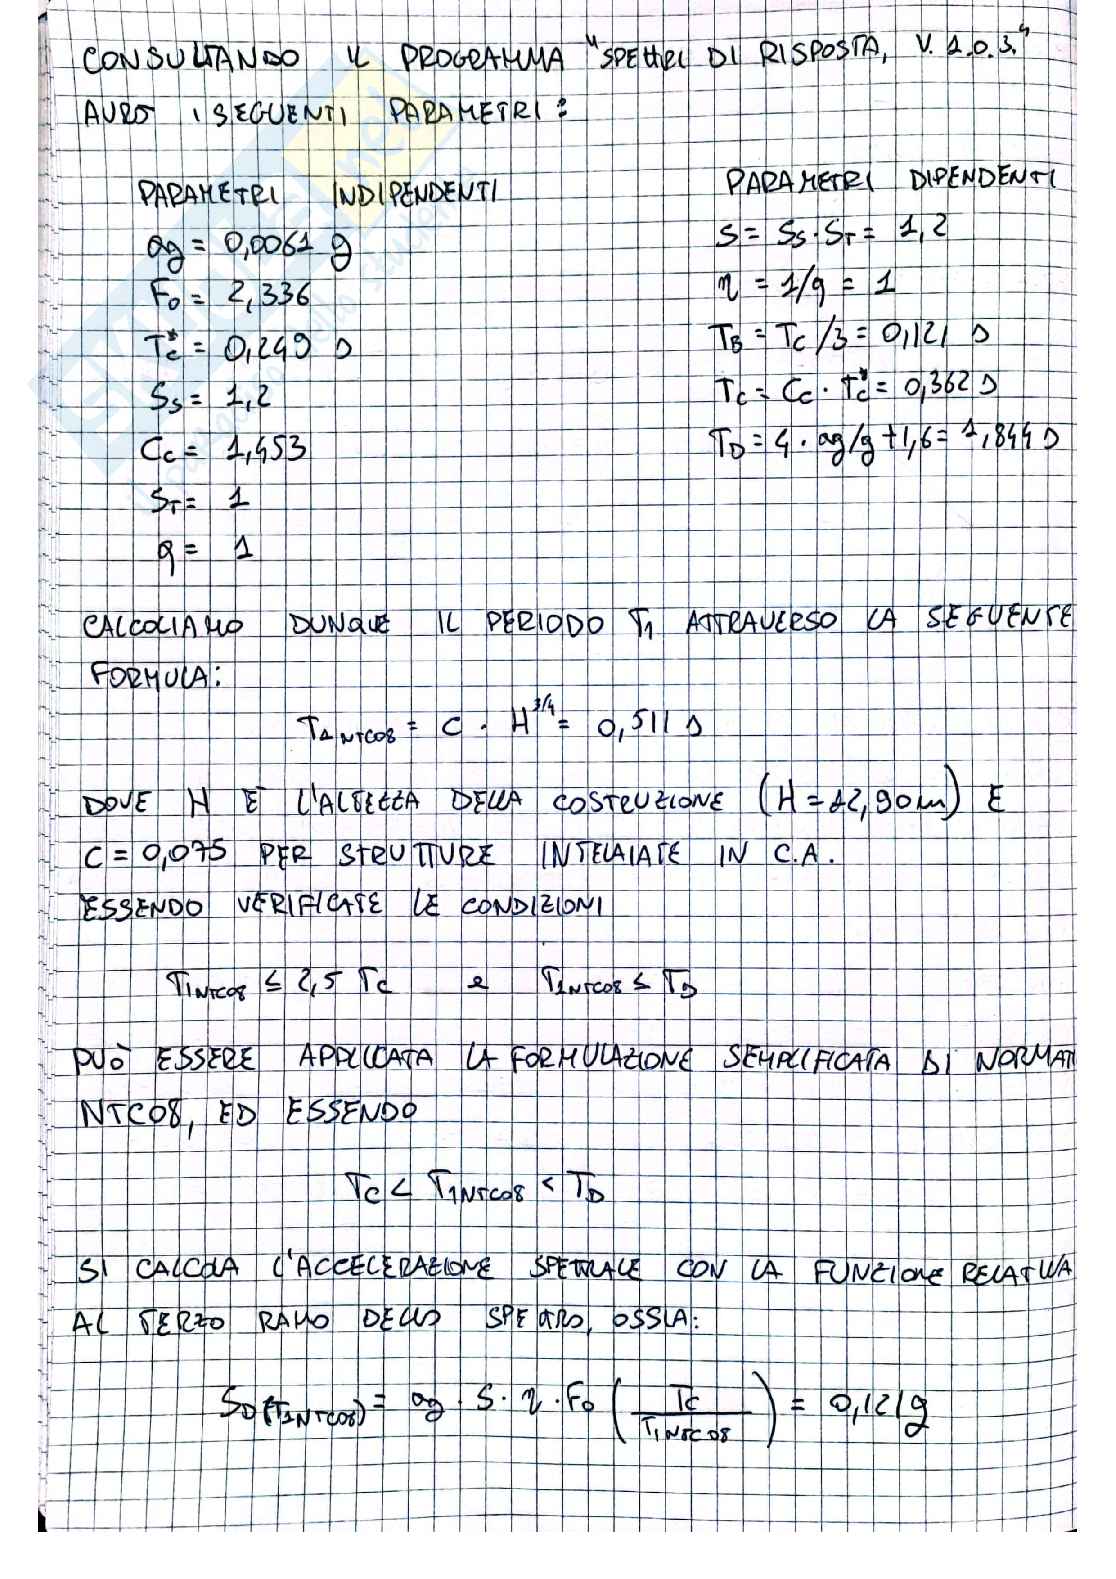 CONSULTANDO IL PROGRAMMA "SPETTRI DI RISPOSTA, V. 1.0.3."
AVRÒ I SEGUENTI PARAMETRI:
PARAMETRI INDIPENDENTI
ag = 0,0061 g
F₀ = 2,336
Tc* = 0,249 s
Ss = 1,2
Cc = 1,453
ST = 1
q = 1
PARAMETRI DIPENDENTI
S = Ss · ST = 1,2
η = 1/q = 1
TB = TC/3 = 0,121 s
TC = Cc · Tc* = 0,362 s
TD = 4 · ag/g + 1,6 = 1,844 s
CALCOLIAMO DUNQUE IL PERIODO T1 ATTRAVERSO LA SEGUENTE
FORMULA:
T1NTC08 = C · H^3/4 = 0,511 s
DOVE H È L'ALTEZZA DELLA COSTRUZIONE (H = 12,90 m) E
C = 0,075 PER STRUTTURE INTELAIATE IN C.A.
ESSENDO VERIFICATE LE CONDIZIONI
T1NTC08 ≤ 2,5 TC e T1NTC08 ≤ TD
PUÒ ESSERE APPLICATA LA FORMULAZIONE SEMPLIFICATA DI NORMATI
NTC08, ED ESSENDO
TC < T1NTC08 < TD
SI CALCOLA L'ACCELERAZIONE SPETTRALE CON LA FUNZIONE RELATIVA
AL TERZO RAMO DELLO SPETTRO, OSSIA:
SD(T1NTC08) = ag · S · η · F₀ (TC / T1NTC08) = 0,121g